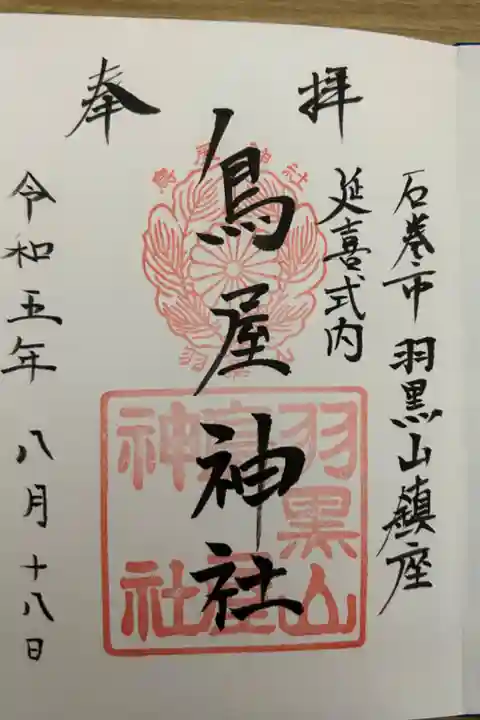 奉拝
石巻市羽黒山鎮座
延喜式内
鳥屋神社
令和五年八月十八日
鳥屋神社
羽黒山
鳥屋
神社